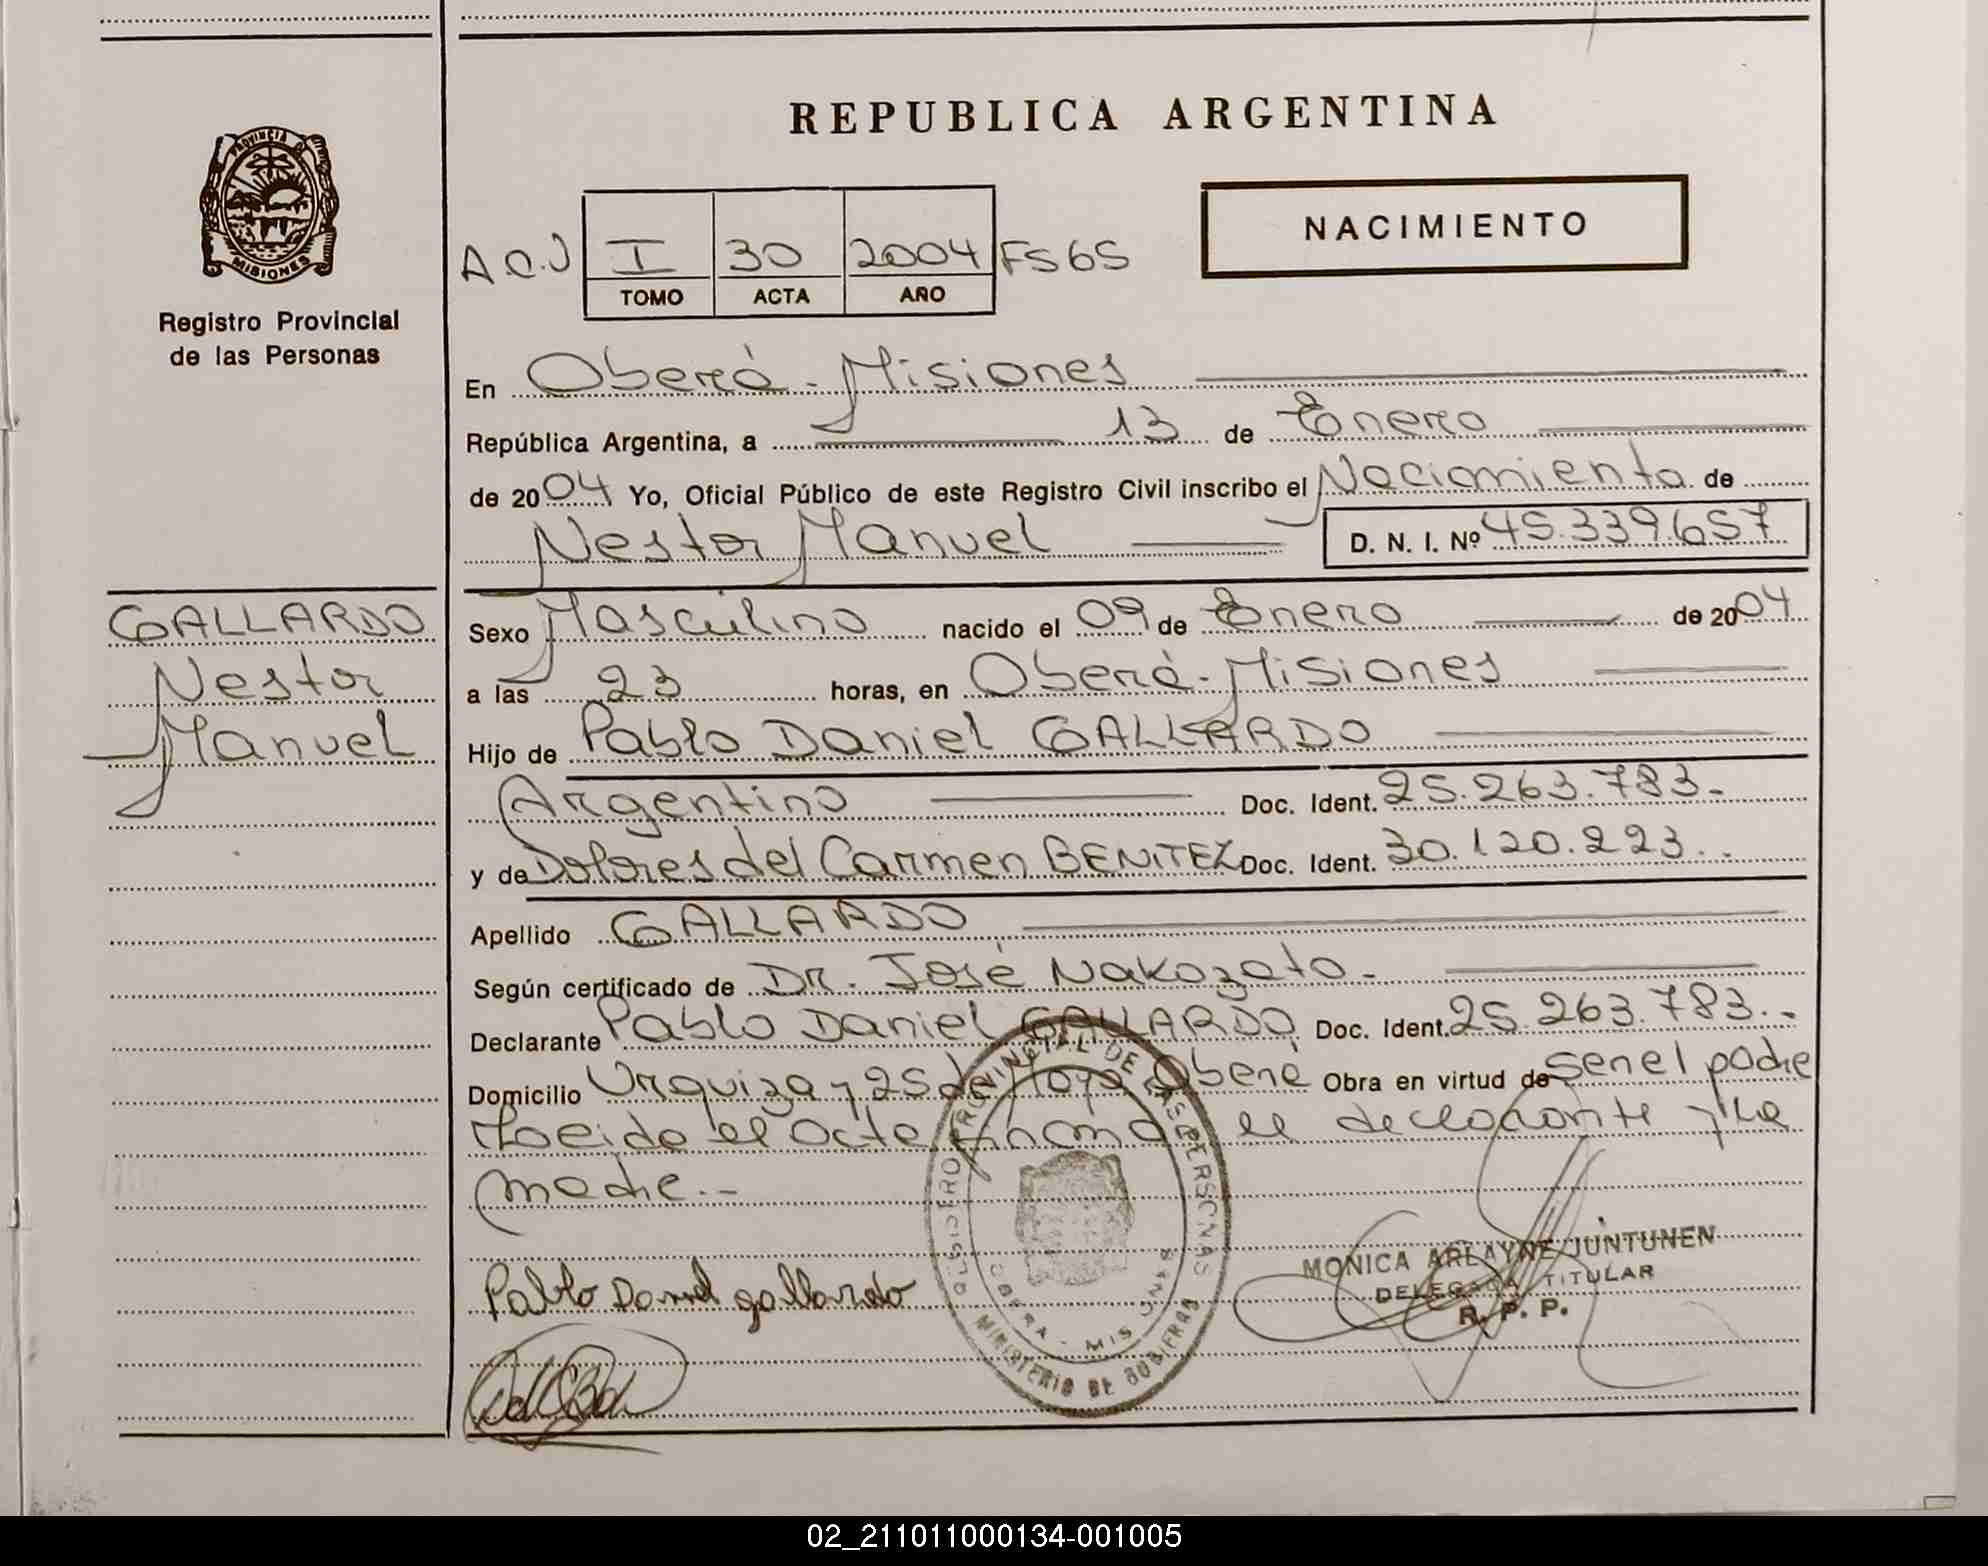 REPUBLICA ARGENTINA
NACIMIENTO
PROVINCIA D
MISIONES
Registro Provincial
de las Personas
A C.J I 30 2004 FS65
TOMO ACTA AÑO
En Oberá - Misiones
República Argentina, a 13 de Enero
de 2004 Yo, Oficial Público de este Registro Civil inscribo el Nacimiento de
Nestor Manuel D. N. I. Nº 45.339.657
GALLARDO
Nestor
Manuel
Sexo Masculino nacido el 09 de Enero de 2004
a las 23 horas, en Oberá - Misiones
Hijo de Pablo Daniel GALLARDO
Argentino Doc. Ident. 25.263.783.-
y de Dolores del Carmen BENITEZ Doc. Ident. 30.120.223.-
Apellido GALLARDO
Según certificado de Dr. José Nakozato.-
Declarante Pablo Daniel GALLARDO Doc. Ident. 25.263.783.-
Domicilio Urquiza y 25 de Mayo Oberá Obra en virtud de ser el padre
el acta el declarante y la
madre.-
Pablo Daniel gallardo
REGISTRO PROVINCIAL DE LAS PERSONAS
OBERA - MIS
MINISTERIO DE GOBIERNO
MONICA ARLAYNE JUNTUNEN
DELEGADA TITULAR
R. P. P.
02_211011000134-001005